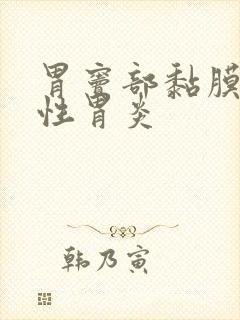 胃窦部黏膜
性胃炎
韩乃寅